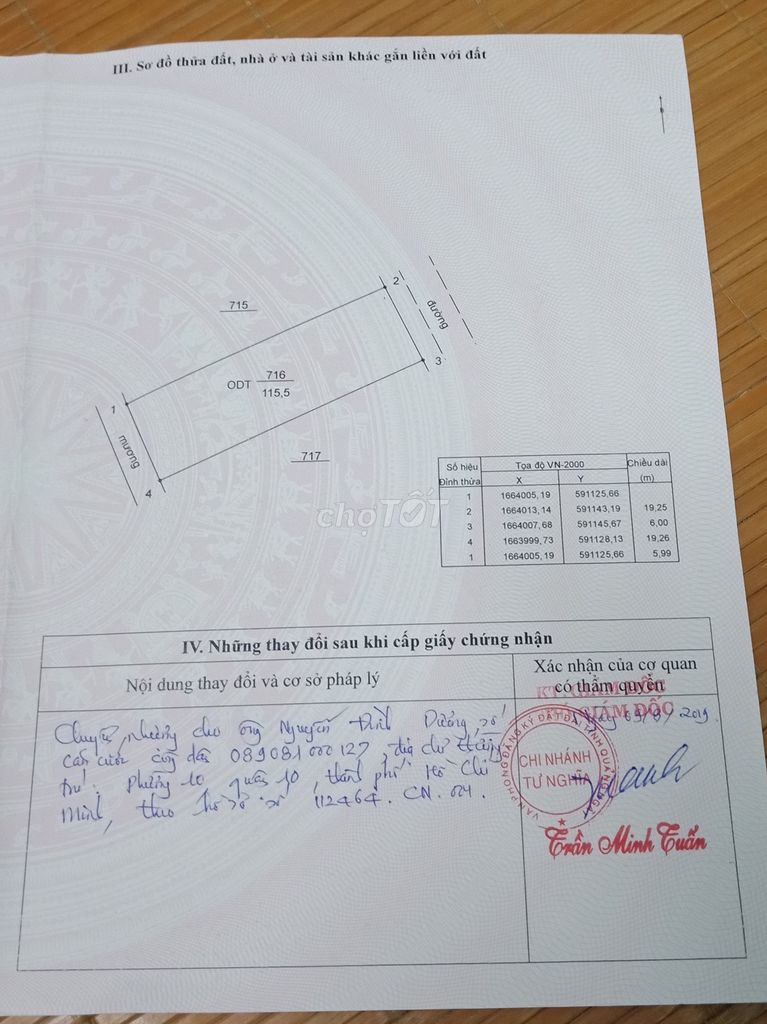 III. Sơ đồ thửa đất, nhà ở và tài sản khác gắn liền với đất
715
2
đường
3
ODT 716
115,5
1
mương
4
717
chợTỐT
Số hiệu Đỉnh thửa Tọa độ VN-2000 Chiều dài (m)
X Y
1 1664005,19 591125,66
2 1664013,14 591143,19 19,25
3 1664007,68 591145,67 6,00
4 1663999,73 591128,13 19,26
1 1664005,19 591125,66 5,99
IV. Những thay đổi sau khi cấp giấy chứng nhận
Nội dung thay đổi và cơ sở pháp lý
Xác nhận của cơ quan
có thẩm quyền
Chuyển nhượng cho ông Nguyễn Đình Dương, số
căn cước công dân 089081000127, địa chỉ thường
trú: Phường 10, quận 10, thành phố Hồ Chí
Minh, theo hồ sơ số 112464. CN. 001.
GIÁM ĐỐC
2019
VĂN PHÒNG ĐĂNG KÝ ĐẤT ĐAI TỈNH QUẢNG NGÃI
CHI NHÁNH
TƯ NGHĨA
Trần Minh Tuấn